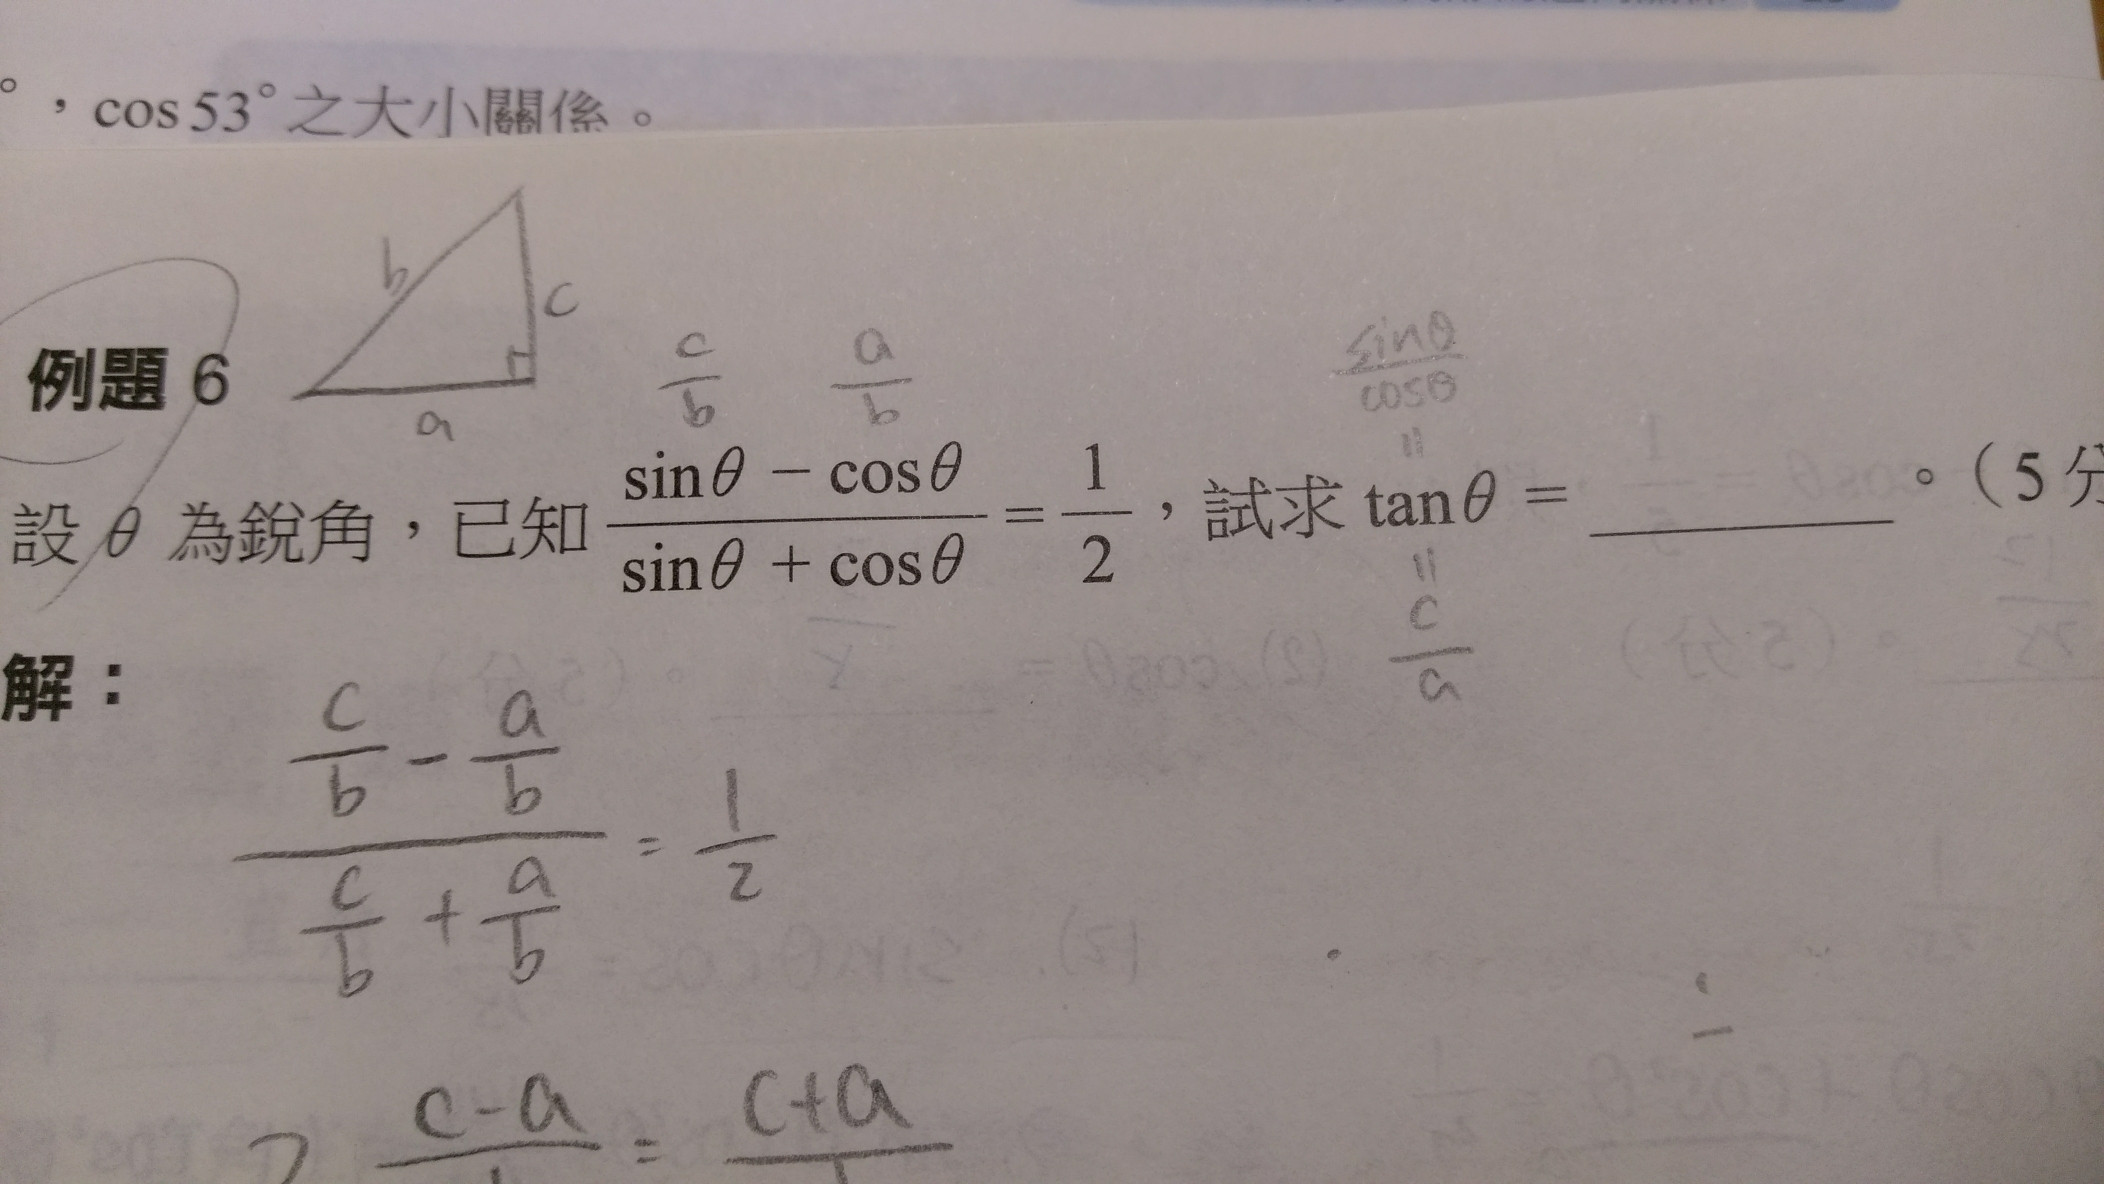 °，cos53°之大小關係。
b
c
a
例題 6
c/b a/b
sinθ/cosθ
=
設 θ 為銳角，已知 (sinθ − cosθ)/(sinθ + cosθ) = 1/2，試求 tanθ = ______。（5 分
=
c/a
解：
(c/b - a/b)/(c/b + a/b) = 1/2
2 c-a/b = c+a/b